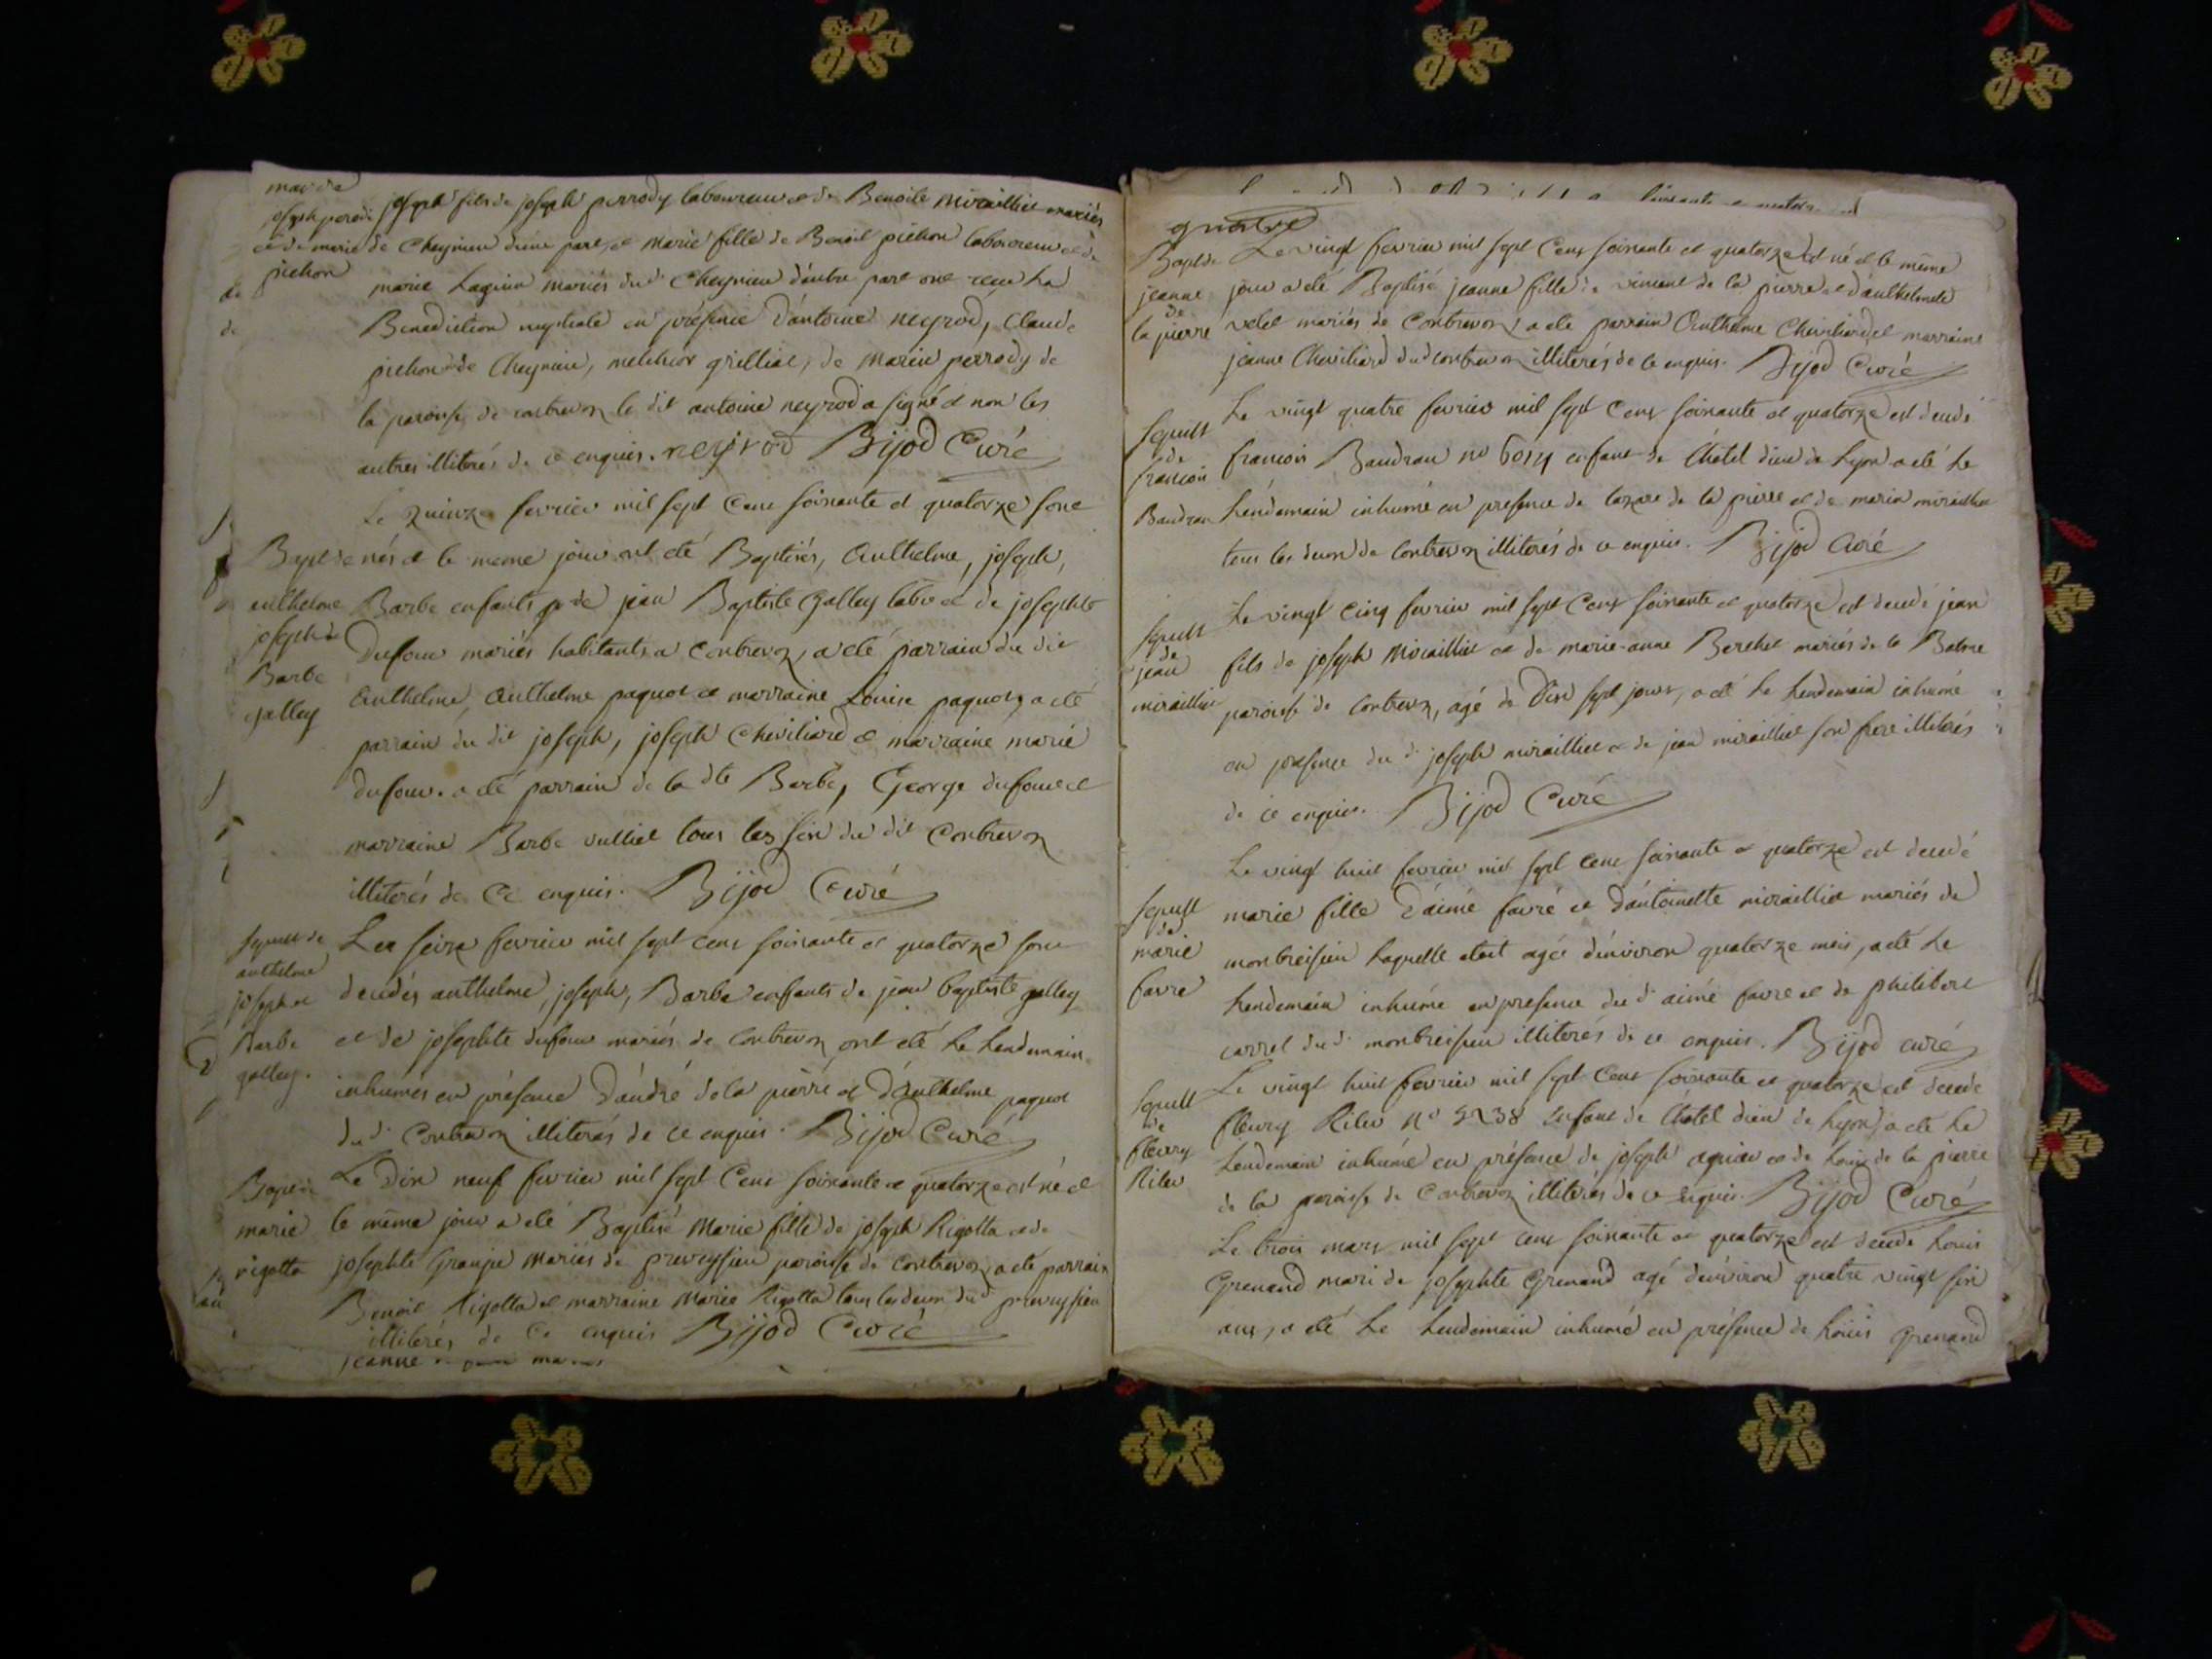 mar de
joseph perodi joseph fils de joseph perrody laboureur et de Benoite miraillier mariés
et de marie de Cheynieu d'une part, et marie fille de Benoit pichon laboureur et de
pichon marie Laguin mariés du d Cheynieu d'autre part ont recu La
Benediction nuptiale en présence d'antoine neyrod, Claude
pichon de Cheynieu, melchior grilliat, de marin perrody de
la paroisse de contrevoz le dit antoine neyrod a signé et non les
autres illiterés de ce enquis. neyrod Bijod Curé
Le quinze fevrier mil sept Cent soixante et quatorze sont
Bapt de nés et le meme jour ont été Baptisés, Anthelme, joseph,
anthelme Barbe enfants de jean Baptiste Galley labr et de josephte
joseph & Dufour mariés habitants a Contrevoz, a été parrain du dit
Barbe Anthelme, Anthelme paquot et marraine Louise paquot, a été
galley parrain du dit joseph, joseph Cheviliard et marraine marie
dufour. a été parrain de la dte Barbe, George dufour et
marraine Barbe vulliet tous les six du dit Contrevoz
illiterés de Ce enquis. Bijod Curé
sepult de Les seize fevrier mil sept cent soixante et quatorze sont
anthelme
joseph et decedés anthelme, joseph, Barbe enfants de jean baptiste galley
Barbe et de josephte dufour mariés de Contrevoz ont été le Lendemain
galley. inhumés en présence D'andré de la pierre et d'Anthelme paquot
du d. Contrevoz illiterés de ce enquis. Bijod Curé
Bapt de Le Dix neuf fevrier mil sept Cent soixante et quatorze est né et
marie le même jour a été Baptisé Marie fille de joseph Rigotta et de
rigotta josephte Granje mariés de preveyssieu paroisse de Contrevoz, a été parrain
Benoit Rigotta et marraine Marie Rigotta tous les deux du d preveyssieu
illiterés de Ce enquis Bijod Curé
jeanne
quatre
Bapt de Le vingt fevrier mil sept Cent soixante et quatorze est né et le même
jeanne jour a été Baptisé jeanne fille de vincent de la pierre et d'anthelmete
de
la pierre velet mariés de Contrevoz, a été parrain Anthelme Cheviliard et marraine
jeanne Cheviliard du d contrevoz illiterés de ce enquis. Bijod Curé
Le vingt quatre fevrier mil sept Cent soixante et quatorze est decedé
sepult
de francois Baudran no enfant de l'hôtel dieu de Lyon a été le
francois
Baudran Lendemain inhumé en presence de lazare de la pierre et de marin miraillier
tous les deux de Contrevoz illiterés de ce enquis. Bijod Curé
Le vingt Cinq fevrier mil sept Cent soixante et quatorze est decedé jean
sepult
de
jean fils de joseph Miraillier et de marie-anne Berthet mariés de la Balme
miraillier paroisse de Contrevoz, agé de Dix sept jours, a été le Lendemain inhumé
en presence du d. joseph miraillier et de jean miraillier son frere illiterés
de ce enquis. Bijod Curé
Le vingt huit fevrier mil sept cent soixante et quatorze est decedé
sepult marie fille d'aimé favre et d'antoinette miraillier mariés de
de
marie montbreisieu laquelle etoit agée d'environ quatorze mois, a été Le
favre Lendemain inhumé en presence du d. aimé favre et de philibert
carrel du d. montbreisieu illiterés de ce enquis. Bijod curé
Le vingt huit fevrier mil sept Cent soixante et quatorze est decedé
sepult
de fleury Riter no 5238 enfant de l'hôtel dieu de Lyon, a été Le
fleury Lendemain inhumé en présence de joseph et de Louis de la pierre
Riter
de la paroisse de Contrevoz illiterés de ce enquis. Bijod Curé
Le trois mars mil sept cent soixante et quatorze est decedé Louis
Grenand mari de josephte Grenand agé d'environ quatre vingt six
ans, a été Le Lendemain inhumé en présence de Louis Grenand